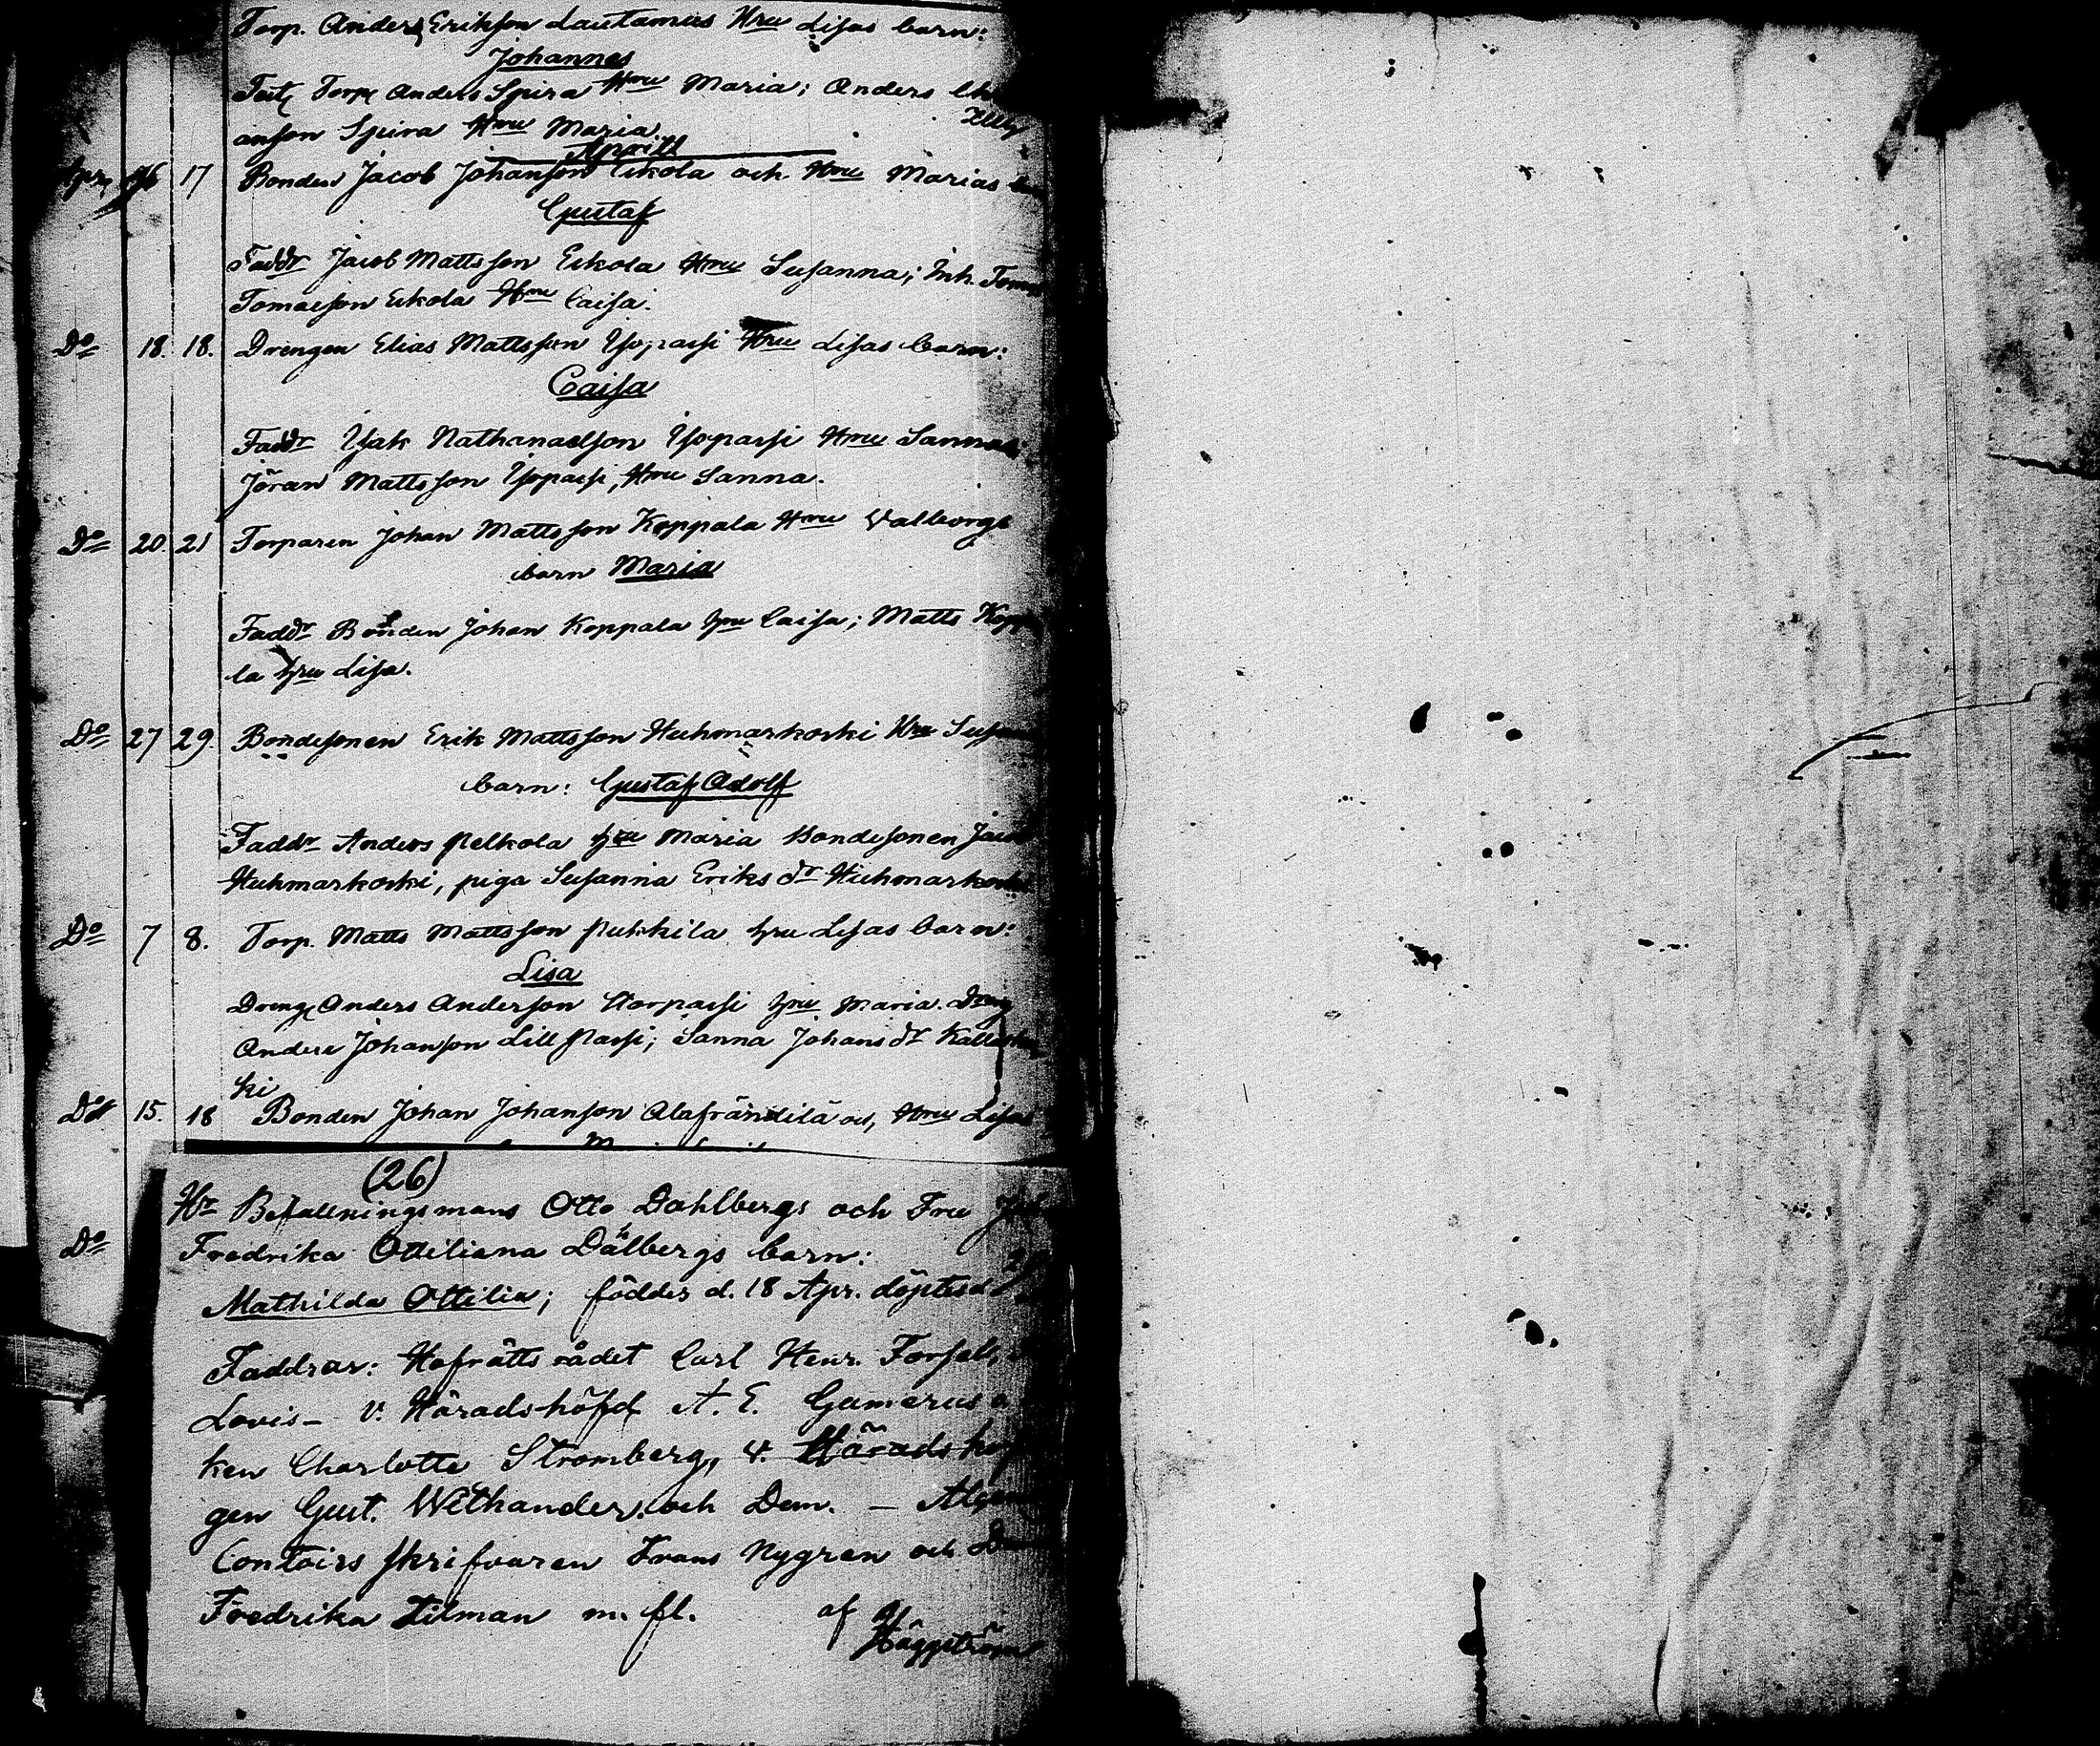 Torp. Anders Erikson Lautamus Hru Lisas barn:
Johannes
Test. Torp. Anders Spira Hru Maria; Anders
anson Spira Hru Maria.
April
Apr. 16 17 Bonden Jacob Johanson Eikola och Hru Marias
Gustaf
Faddr Jacob Mattsson Eikola Hru Susanna; Inh. Tomas
Tomasson Eikola Hru Caisa.
Do 18. 18. Drengen Elias Mattsson Isopassi Hru Lisas barn:
Caisa
Faddr Isak Nathanaelson Isopassi Hru Sanna;
Jöran Mattsson Isopassi, Hru Sanna.
Do 20. 21 Torparen Johan Mattsson Koppala Hru Valborgs
barn Maria
Faddr Bonden Johan Koppala hru Caisa; Matts Koppa
la hru Lisa.
Do 27 29. Bondesonen Erik Mattsson Huhmarkoski Hru
barn: Gustaf Adolf
Faddr Anders Pelkola hru Maria Bondesonen Jacob
Huhmarkoski, piga Susanna Eriks dr Huhmarkoski
Do 7 8. Torp. Matts Mattsson Pukkila hru Lisas barn:
Lisa
Dreng Anders Anderson Storpassi hru Maria. Dreng
Anders Johanson Lill Passi; Sanna Johans dr
ki
Do 15. 18 Bonden Johan Johanson Alafrändilä och Hru Lisas
(26)
Hr Befallningsmans Otto Dahlbergs och Fru
Do Fredrika Ottiliana Dahlbergs barn:
Mathilda Ottilia; föddes d. 18 Apr. döptes d
Faddrar: Hofrätts rådet Carl Henr. Forsell,
Lovis - v. Häradshöfd A. E. Gumerus
ken Charlotte Stromberg, v. Häradshöf
gen Gust. Wethander och Dem. -
Contoirs skrifvaren Frans Nygren och
Fredrika Tilman m. fl. af
Häggström